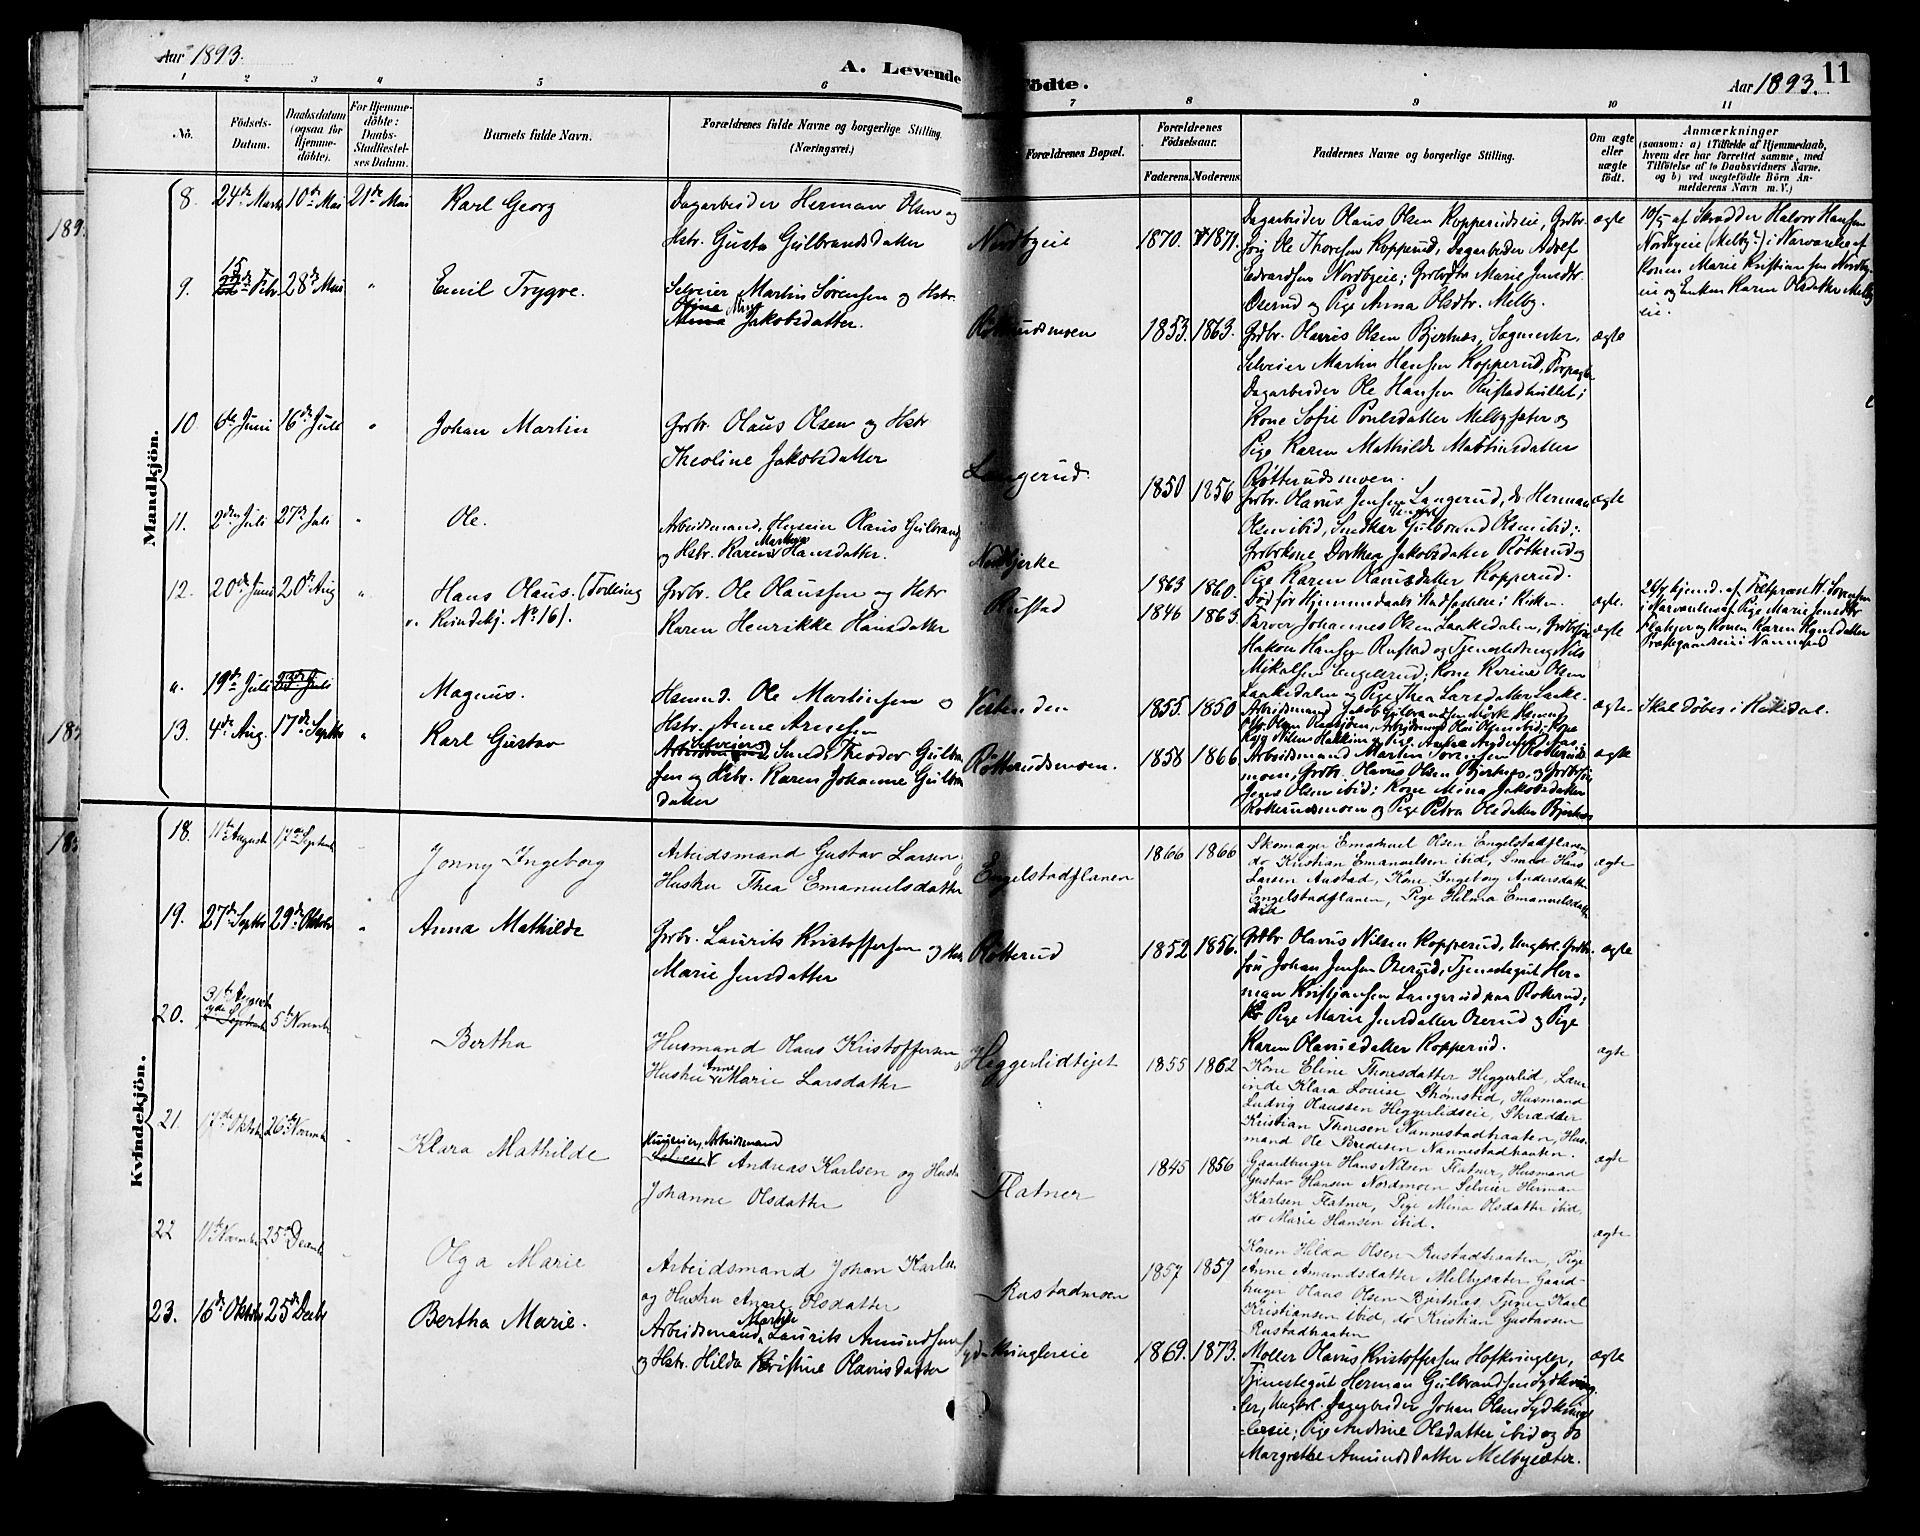 Aar 1893.
A. Levende Födte.
Aar 1893.
11
1 2 3 4 5 6 7 8 9 10 11
No.
Födsels-
Datum.
Daabsdatum
(ogsaa for
Hjemme-
döbte).
For Hjemme-
döbte:
Daabs-
Stadfæstel-
ses Datum.
Barnets fulde Navn.
Forældrenes fulde Navne og borgerlige Stilling.
(Næringsvei.)
Forældrenes Bopæl.
Forældrenes
Födselsaar.
Faderens. Moderens.
Faddernes Navne og borgerlige Stilling.
Om ægte
eller
uægte
födt.
Anmærkninger
(saasom: a) i Tilfælde af Hjemmedaab,
hvem der har forrettet samme, med
Tilföielse af to Daabsvidners Navne,
og b) ved uægtefödte Börn An-
melderens Navn m. V.)
Mandkjön.
8. 24de Marts 10de Mai 21de Mai Karl Georg
Dagarbeider Herman Olsen og
Hstr. Gusta Gulbrandsdatter
Nordbyeie 1870. 1871.
Dagarbeider Olaus Olsen Kopperudseie, Grdbr.
søn Ole Thoresen Kopperud, Dagarbeider Adolf
Edvardsen Nordbyeie; Grbrdtr. Marie Jensdtr.
Oserud og Pige Anna Olsdtr. Melby.
ægte
10/5 af Skrædder Halvor Hansen
Nordbyeie (Melby?) i Nærværelse af
Konen Marie Kristiansen Nordby-
eie og Enken Karen Olsdatter Melby
eie.
9. 15 Febr 28de Mai " Emil Trygve.
Selveier Martin Sørensen og Hstr.
Mina Jakobsdatter.
Røtterudsmoen 1853. 1863.
Grdbr. Olavus Olsen Bjertnæs, Sagmester,
Selveier Martin Hansen Kopperud, Forpagter
Dagarbeider Ole Hansen Rustadhullet;
Kone Sofie Poulsdatter Melbysæter og
Pige Karen Mathilde Martinsdatter
Røtterudsmoen.
ægte
10. 6te Juni 16de Juli " Johan Martin
Grdbr. Olaus Olsen og Hstr
Theoline Jakobsdatter
Langerud. 1850 1856
Grdbr. Olavus Jensen Langerud, do Herman
Olsen ibid, Snedker Gulbrand Olsen ibid;
Grdbrkone Dorthea Jakobsdatter Røtterud og
Pige Karen Olavusdatter Kopperud.
ægte
11. 2den Juli 27de Juli " Ole.
Arbeidsmand, Huseier Olaus Gulbrand
og Hstr. Karen Martha Hansdatter.
Nordbjerke 1863 1860.
Død før Hjemmedaabs Stadfæstelse i Kirken.
ægte.
12. 20de Juni 20de Aug " Hans Olaus. (Tvilling
v. Kvindekj. No 16).
Grdbr. Ole Olaussen og Hstr
Karen Henrikke Hansdatter
Rustad 1846 1863
Farver Johannes Olsen Laakedalen, Grdbrsøn
Hakon Hansen Rustad og Tjenestedreng Nils
Mikalsen Engelerud; Kone Karine Olsen
Laakedalen og Pige Thea Larsdatter Laake-
ægte
a. 19de Juli 23de Juli Magnus.
Husmd. Ole Martinsen og
Hstr. Anne Arnesen
Vestenden 1855. 1850
ægte.
Skal döbes i Hakedal.
13. 4de Aug. 17de Septbr " Karl Gustav
Selveier Smed Theodor Gulbran
sen og Hstr. Karen Johanne Gulbrans
datter
Røtterudsmoen. 1858 1866
Arbeidsmand Martin Sørensen Røtteruds-
moen, Grdbr. Olavus Olsen Bjertnæs, og Grdbrsøn
Jens Olsen ibid; Kone Mina Jakobsdatter
Røtterudsmoen og Pige Petra Olsdatter Bjertnæs
ægte
Kvindekjön.
18. 11te August 17de Septemb Jonny Ingeborg
Arbeidsmand Gustav Larsen
Hustru Thea Emanuelsdatter
Engelstadflanen 1866 1866
Skomager Emanuel Olsen Engelstadflanen,
do Kristian Emanuelsen ibid, Smed Hans
Larsen Austad, Kone Ingeborg Andersdatter
Engelstadflanen, Pige Helma Emanuelsdatter
ibid
ægte
19. 27de Septbr 29de Oktober " Anna Mathilde
Grdbr. Laurits Kristoffersen og Hstr
Marie Jensdatter
Røtterud 1852 1856.
Grdbr Olavus Nilsen Kopperud, Ungkrl. Grdbr.
søn Johan Jensen Oserud, Tjenestegut Her-
man Kristiansen Langerud paa Røtterud;
Pige Marie Jensdatter Oserud og Pige
Karen Olavusdatter Kopperud.
ægte
20. 31te August 5te Novembr Bertha
Husmand Olaus Kristoffersen
Hustru Anne Marie Larsdatter
Heggerlidteiet 1855 1862
Kone Eline Thoresdatter Heggerlid, Lærer-
inde Klara Louise Strømstid, Husmand
Ludvig Olaussen Heggerlidseie, Skrædder
Kristian Thoresen Nannestadhaaten, Hus-
mand Ole Bredesen Nannestadhaaten.
ægte
21. 17de Oktobr 26de Novembr Klara Mathilde
Huseier, Arbeidsmand
Andreas Karlsen og Hustru
Johanne Olsdatter
Flatner 1845 1856
Gaardbruger Hans Nilsen Flatner, Husmand
Gustav Hansen Nordmoen Selveier Herman
Karlsen Flatner, Pige Mina Olsdatter ibid,
do Marie Hansen ibid.
ægte
22 11te Novembr 25de Decembr Olga Marie
Arbeidsmand Johan Karlsen
og Hustru Anne Olsdatter
Rustadmoen 1857 1859
Konen Hilda Olsen Rustadhaaten, Pige
Anne Amundsdatter Melbysæter, Gaard-
bruger Olaus Olsen Bjertnæs, Tjener Karl
Kristiansen ibid, do Kristian Gustavsen
Rustadhaaten
ægte
23. 16de Oktober 25de Decbr Bertha Marie.
Arbeidsmand Martin Laurits Amundsen
og Hstr. Hilda Kristine Olavusdatter
Sydkringlereie 1869. 1873.
Møller Olavus Kristoffersen Hofkringler,
Tjenestegut Herman Gulbrandsen Sydkring-
ler, Ungkrl. Dagarbeider Johan Olsen Sydkring-
lereie; Pige Andrine Olsdatter ibid og do
Margrethe Amundsdatter Melbysæter.
ægte